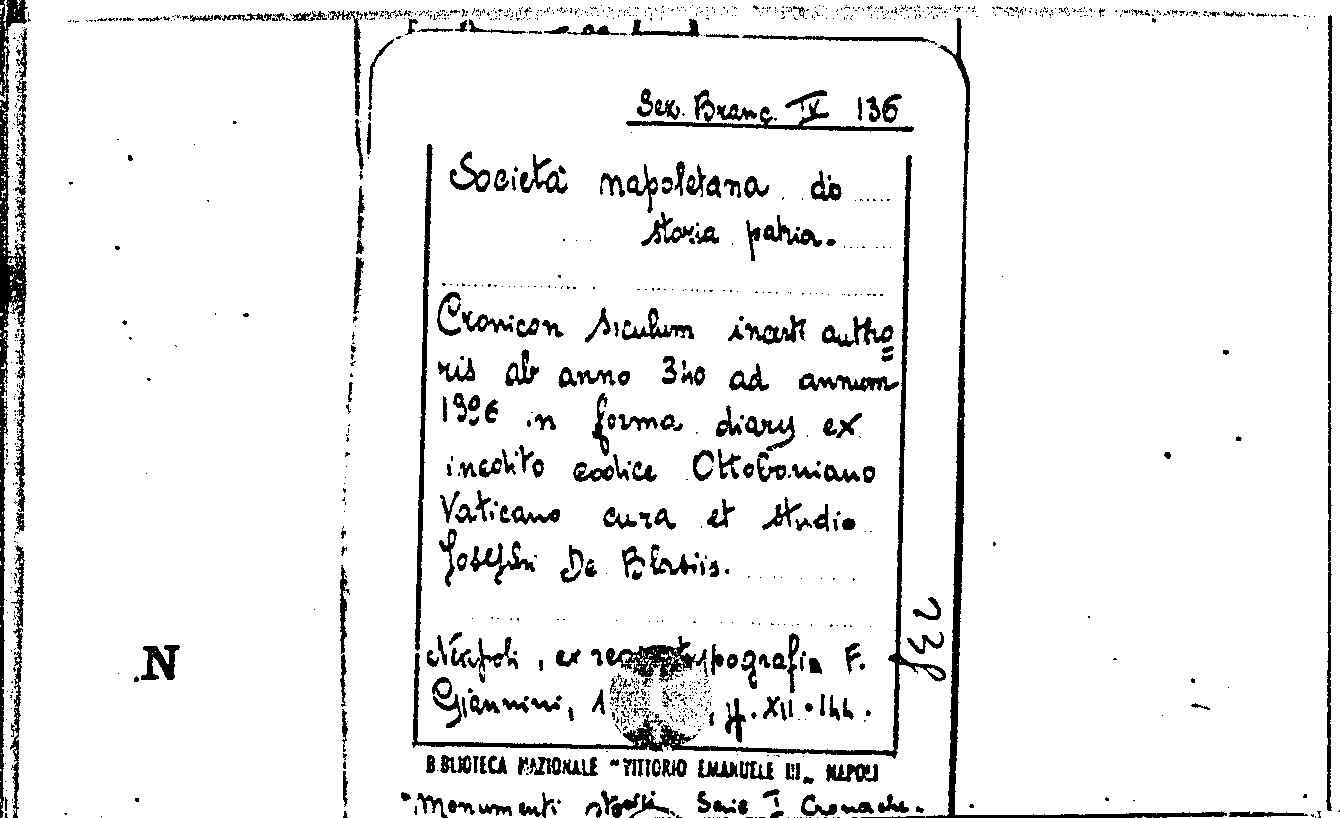 Sez. Branc. IV 136
Società napoletana di
storia patria.
Cronicon siculum incerti autho=
ris ab anno 340 ad annum
1396 in forma diarij ex
inedito codice Ottoboniano
Vaticano cura et studio
Josephi De Blasiis.
Neapoli, ex typografia F.
Giannini, 1 , pp. XII-144.
238
BIBLIOTECA NAZIONALE "VITTORIO EMANUELE III„ NAPOLI
"Monumenti storici, Serie I Cronache.
N